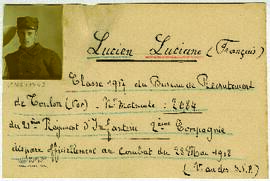 Lucien Luciane (Français)
Classe 1917 du Bureau de Recrutement
de Toulon (Var) N° matricule : 2084
du 21ème Régiment d'Infanterie 2ème Compagnie
disparu officiellement au combat du 28 Mai 1918